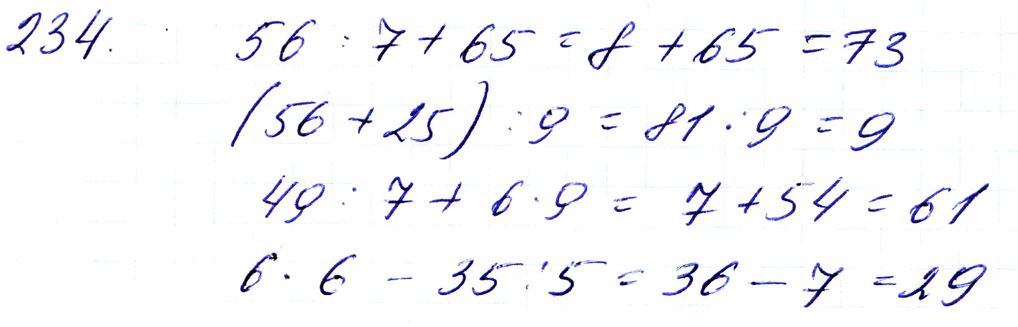 234. 56 : 7 + 65 = 8 + 65 = 73
(56 + 25) : 9 = 81 : 9 = 9
49 : 7 + 6 · 9 = 7 + 54 = 61
6 · 6 - 35 : 5 = 36 - 7 = 29